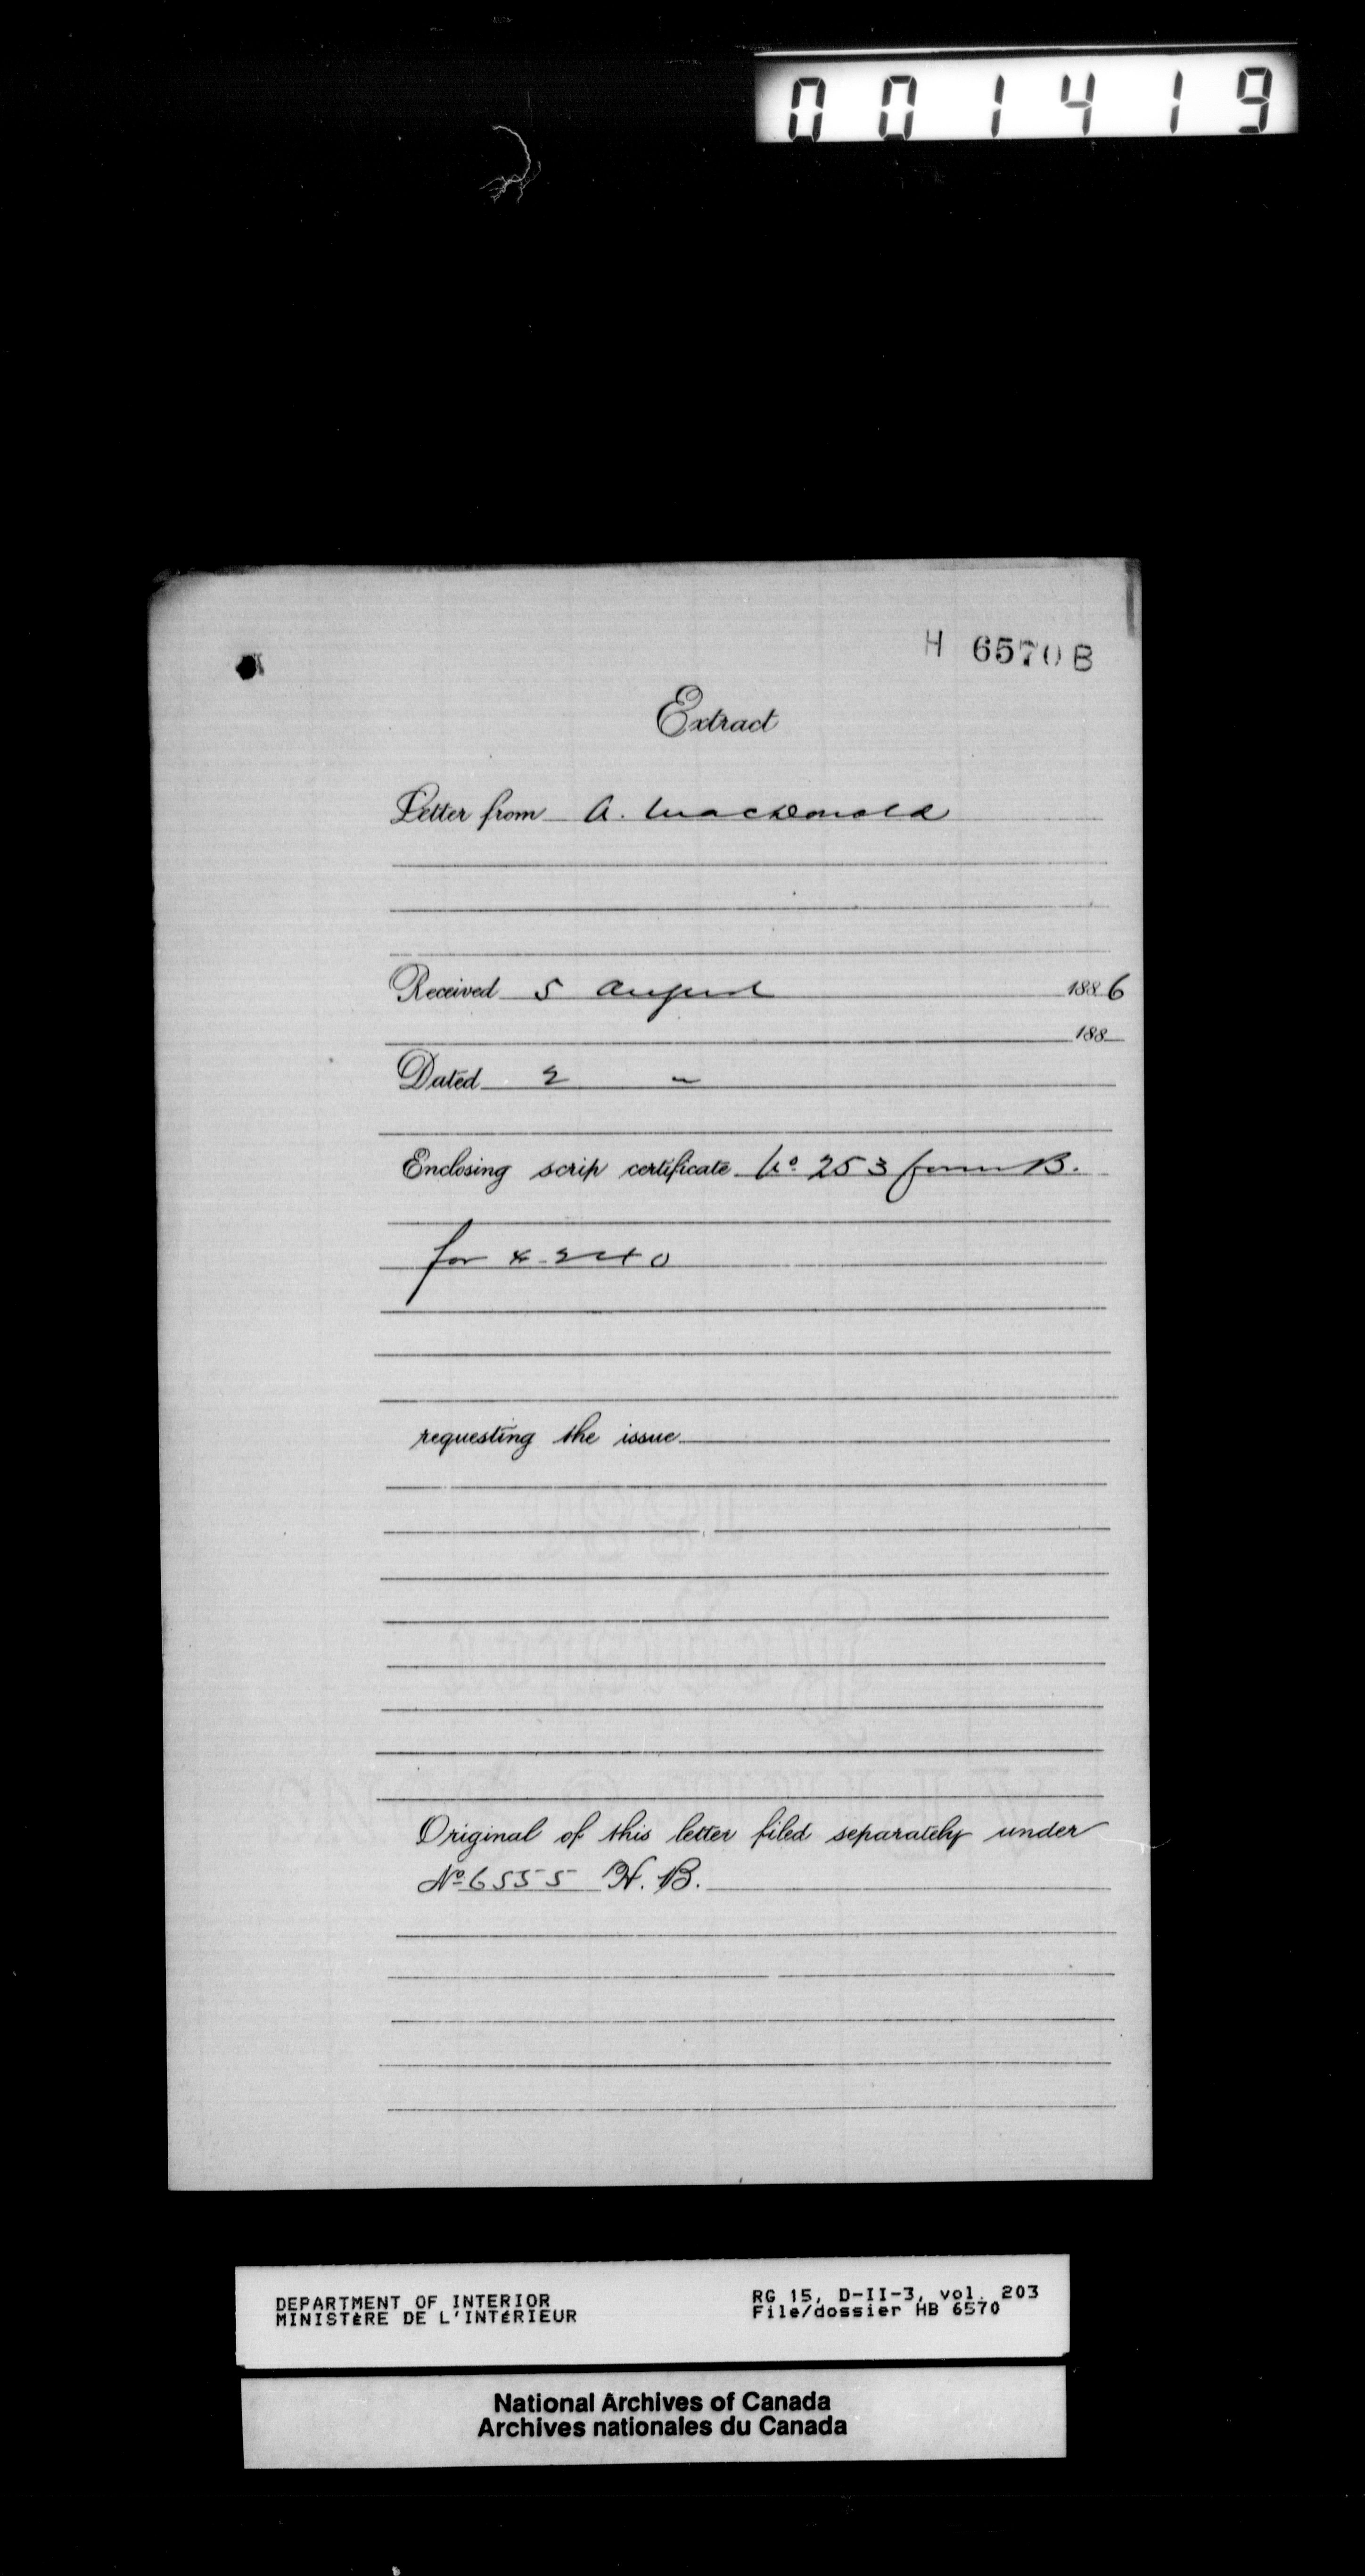 001419
H 6570 B
Extract
Letter from A. MacDonald
Received 5 August 1886
188
Dated 2 "
Enclosing scrip certificate No 253 form B.
for $ 240
requesting the issue
Original of this letter filed separately under
No 6555 H. B.
DEPARTMENT OF INTERIOR
MINISTÈRE DE L'INTÉRIEUR
RG 15, D-II-3, vol. 203
File/dossier HB 6570
National Archives of Canada
Archives nationales du Canada